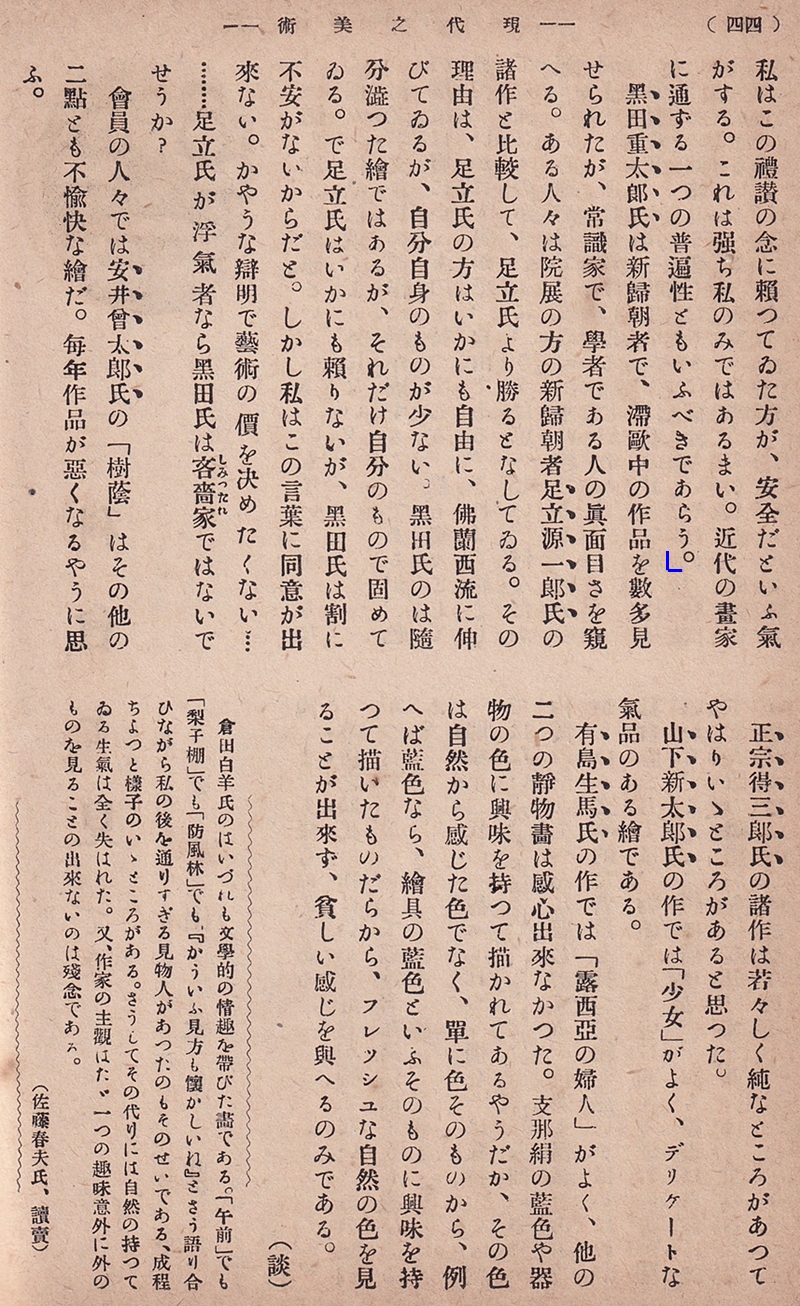 （四四）
――現代之美術――
私はこの禮讃の念に賴つてゐた方が、安全だといふ氣
がする。これは强ち私のみではあるまい。近代の畫家
に通ずる一つの普遍性ともいふべきであらう。
黑田重太郎氏は新歸朝者で、滯歐中の作品を數多見
せられたが、常識家で、學者である人の眞面目さを窺
へる。ある人々は院展の方の新歸朝者足立源一郎氏の
諸作と比較して、足立氏より勝るとなしてゐる。その
理由は、足立氏の方はいかにも自由に、佛蘭西流に伸
びてゐるが、自分自身のものが少ない。黑田氏のは隨
分澁つた繪ではあるが、それだけ自分のもので固めて
ゐる。で足立氏はいかにも賴りないが、黑田氏は割に
不安がないからだと。しかし私はこの言葉に同意が出
來ない。かやうな辯明で藝術の價を決めたくない…
………足立氏が浮氣者なら黑田氏は吝嗇家ではないで
しみつたれ
せうか？
會員の人々では安井曾太郎氏の「樹蔭」はその他の
二點とも不愉快な繪だ。每年作品が惡くなるやうに思
ふ。
正宗得三郎氏の諸作は若々しく純なところがあつて
やはりいゝところがあると思つた。
山下新太郎氏の作では「少女」がよく、デリケートな
氣品のある繪である。
有島生馬氏の作では「露西亞の婦人」がよく、他の
二つの靜物畫は感心出來なかつた。支那絹の藍色や器
物の色に興味を持つて描かれてあるやうだか、その色
は自然から感じた色でなく、單に色そのものから、例
へば藍色なら、繪具の藍色といふそのものに興味を持
つて描いたものだらから、フレッシュな自然の色を見
ることが出來ず、貧しい感じを與へるのみである。
（談）
倉田白羊氏のはいづれも文學的の情趣を帶びた畫である。「午前」でも
「梨子棚」でも「防風林」でも、『かういふ見方も懷かしいね』とさう語り合
ひながら私の後を通りすぎる見物人があつたのもそのせいである、成程
ちよつと樣子のいゝところがある。さうしてその代りには自然の持つて
ゐる生氣は全く失はれた。又、作家の主觀はたゞ一つの趣味意外に外の
ものを見ることの出來ないのは殘念である。
（佐藤春夫氏、讀賣）